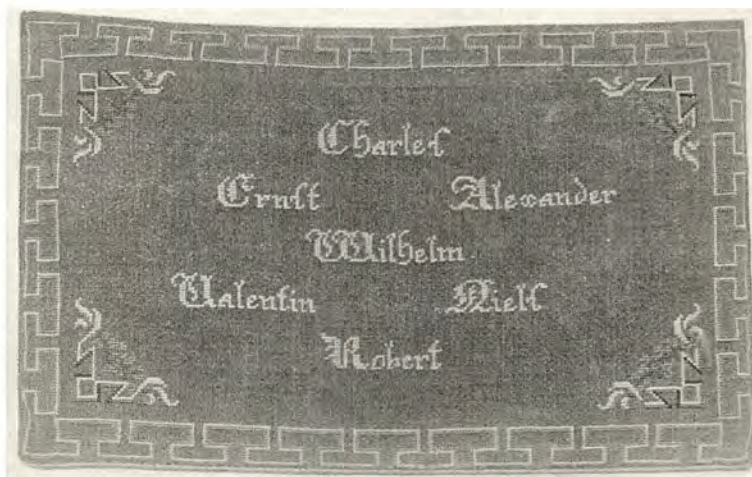 Charleſ
Ernſt Alexander
Wilhelm
Valentin Nielſ
Robert